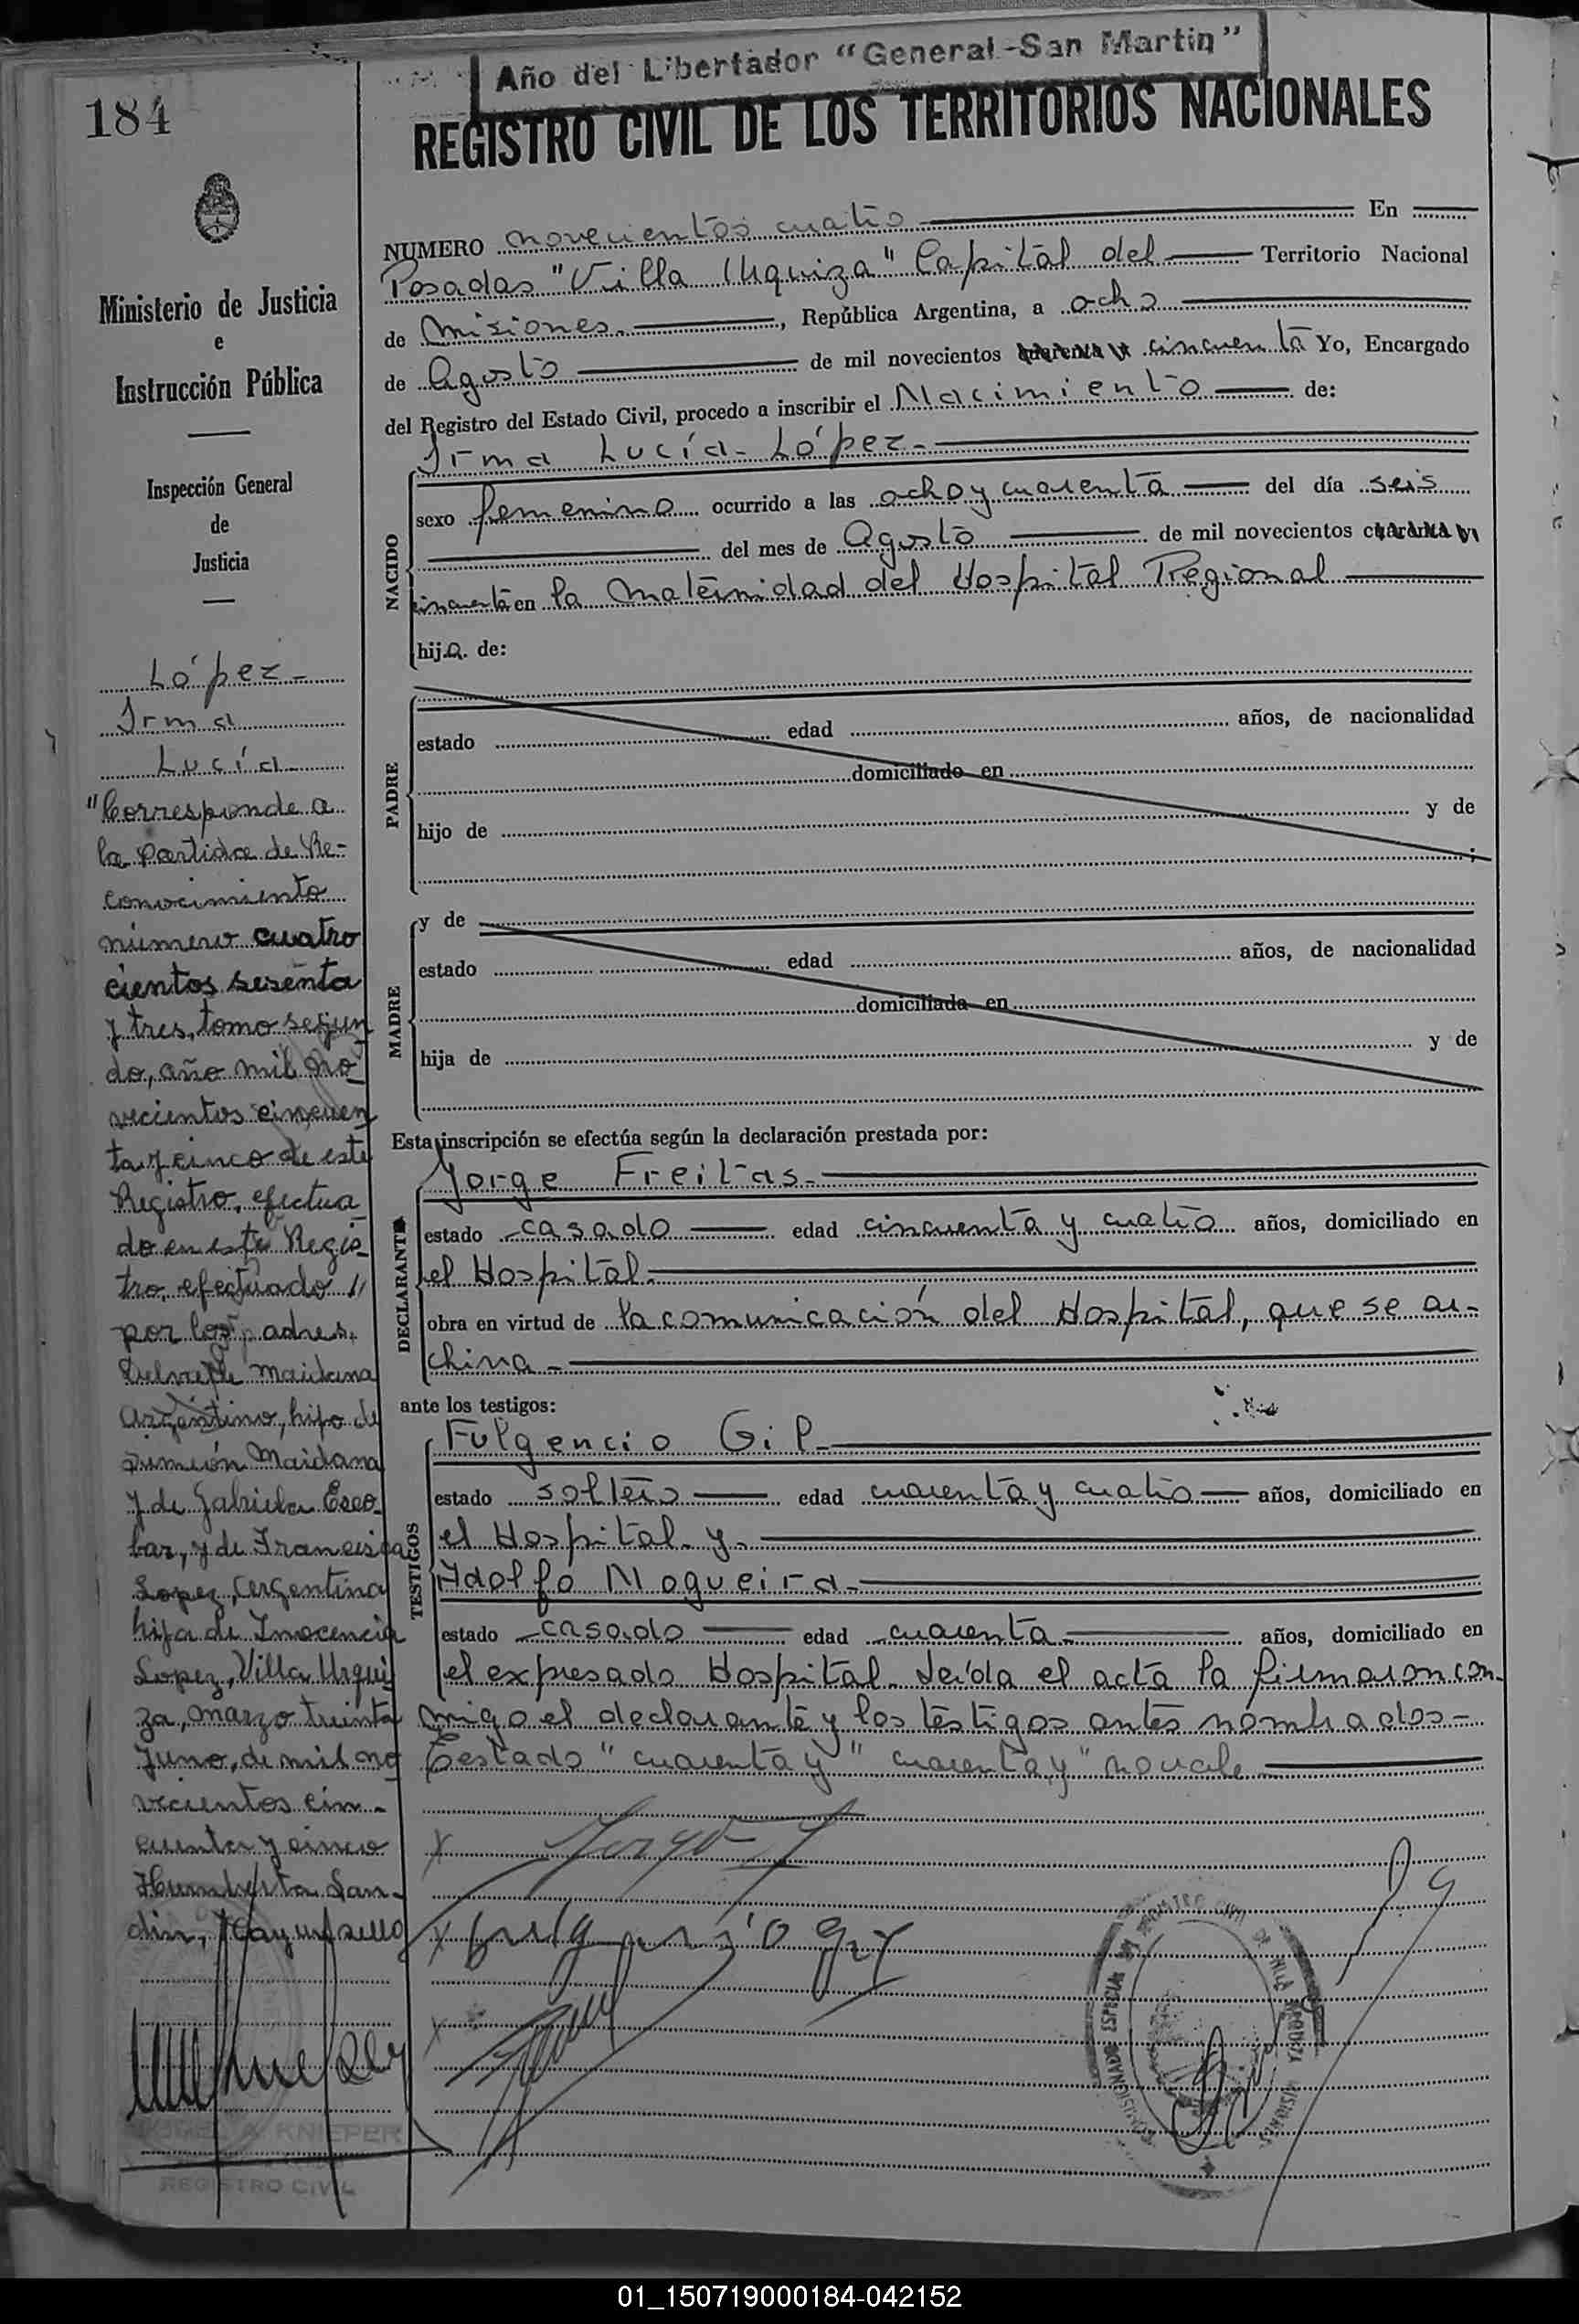 Año del Libertador "General San Martin"
184
REGISTRO CIVIL DE LOS TERRITORIOS NACIONALES
Ministerio de Justicia
e
Instrucción Pública
Inspección General
de
Justicia
López-
Irma
Lucía-
"Corresponde a
la Partida de Re-
conocimiento
número cuatro
cientos sesenta
y tres, tomo segun
do, año mil no-
vecientos cincuen
ta y cinco de este
Registro, efectua
do en este Regis-
tro, efectuado "
por los padres,
Maidana
Argentino, hijo de
Simeón Maidana
y de Gabriela Esco-
bar, y de Francisca
Lopez, Argentina
hija de Inocencia
Lopez, Villa Urqui
za, marzo treinta
y uno, de mil no
vecientos cin-
cuenta y cinco
Humberto San-
din, Hay un sello
KNIEPER
REGISTRO CIVIL
NUMERO novecientos cuatro En
Posadas "Villa Urquiza" Capital del Territorio Nacional
de Misiones. , República Argentina, a ocho
de Agosto de mil novecientos cuarenta y cincuenta Yo, Encargado
del Registro del Estado Civil, procedo a inscribir el Nacimiento de:
NACIDO
Irma Lucía López-
sexo femenino ocurrido a las ocho y cuarenta del día seis
del mes de Agosto de mil novecientos cuarenta y
cincuenta en la Maternidad del Hospital Regional
hij.a. de:
PADRE
estado edad años, de nacionalidad
domiciliado en
hijo de y de
;
MADRE
y de
estado edad años, de nacionalidad
domiciliada en
hija de y de
Esta inscripción se efectúa según la declaración prestada por:
DECLARANTE
Jorge Freitas-
estado casado edad cincuenta y cuatro años, domiciliado en
el Hospital-
obra en virtud de la comunicación del Hospital, que se ar-
chiva-
ante los testigos:
TESTIGOS
Fulgencio Gil-
estado soltero edad cuarenta y cuatro años, domiciliado en
el Hospital y
Adolfo Nogueira-
estado casado edad cuarenta- años, domiciliado en
el expresado Hospital. Leída el acta la firmaron con-
migo el declarante y los testigos antes nombrados-
Testado "cuarenta y" "cuarenta y" no vale
x Jorge F
x fulgensio gil
x
01_150719000184-042152